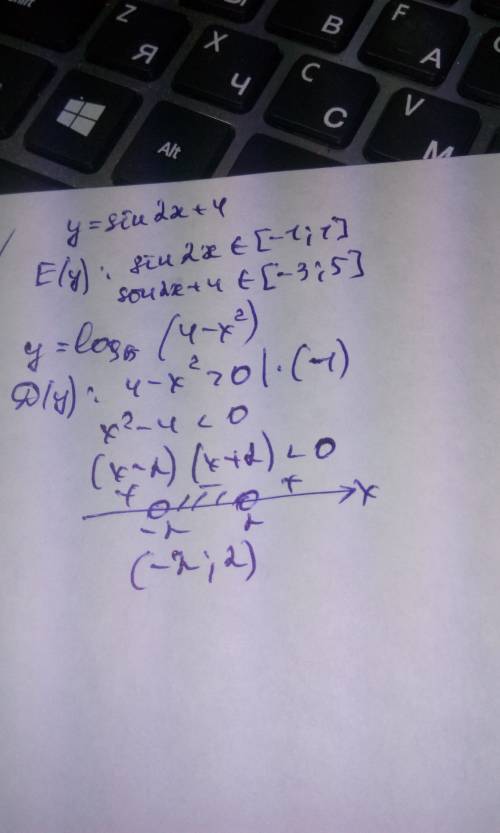 Z Я
X Ч
C С
V М
B И
F А
Alt
y = sin 2x + 4
E(y): sin 2x ∈ [-1; 1]
sin 2x + 4 ∈ [-3; 5]
y = log₅ (4 - x²)
D(y): 4 - x² > 0 | · (-1)
x² - 4 < 0
(x - 2) (x + 2) < 0
+ - + x
-2 2
(-2; 2)